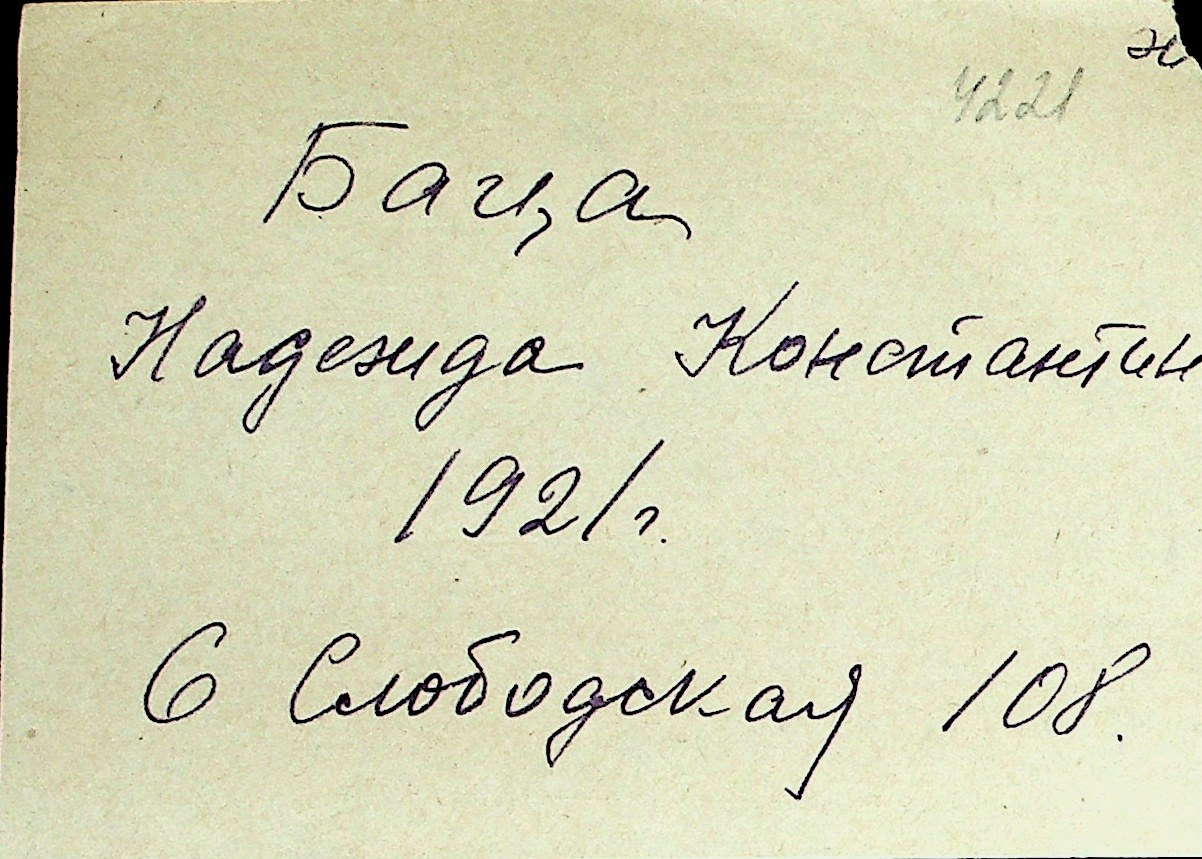 4221
Баца
Надежда Константин
1921г.
6 Слободская 108.